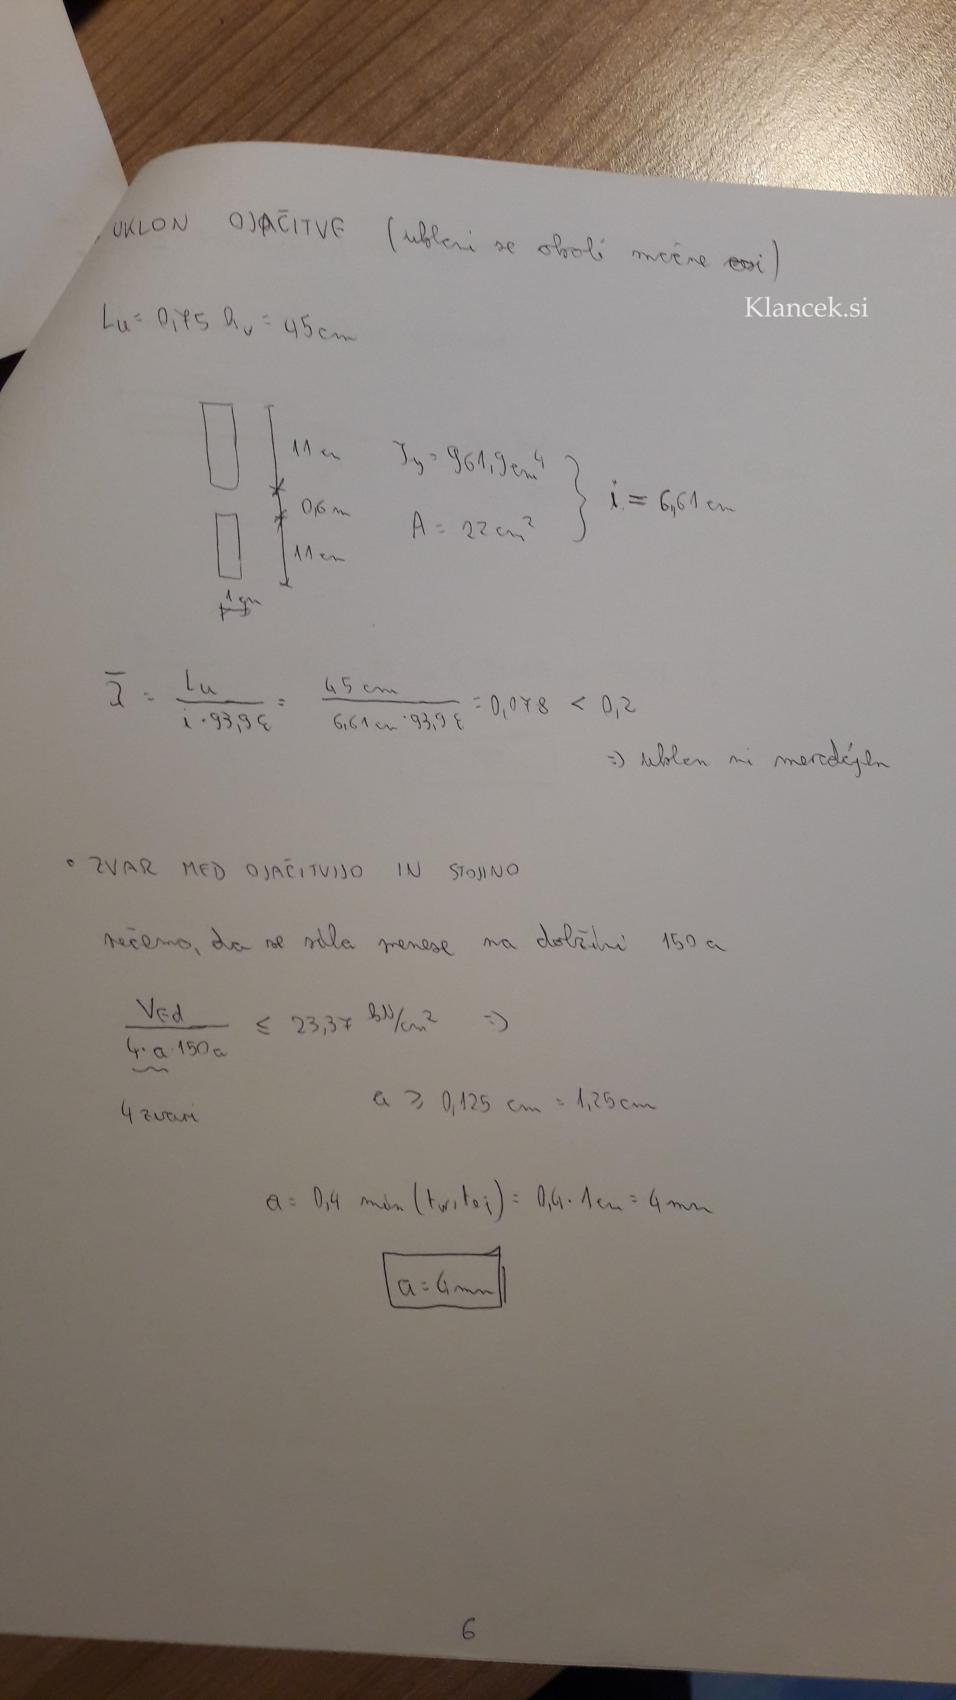 UKLON OJAČITVE (ukloni se okoli močne osi)
Klancek.si
Lu = 0,75 hv = 45cm
11 cm
0,6 m
11 cm
1 cm
Iy = 961,9 cm⁴
A = 22 cm²
i = 6,61 cm
λ̄ = Lu / (i · 93,9 ε) = 45 cm / (6,61 cm · 93,9 ε) = 0,078 < 0,2
=> uklon ni merodajen
• ZVAR MED OJAČITVIJO IN STOJINO
rečemo, da se sila prenese na dolžini 150a
VEd / (4 · a · 150a) ≤ 23,37 kN/cm² =>
4 zvari
a ≥ 0,125 cm = 1,25cm
a = 0,4 min (tw, toj) = 0,4 · 1cm = 4mm
a = 4mm
6